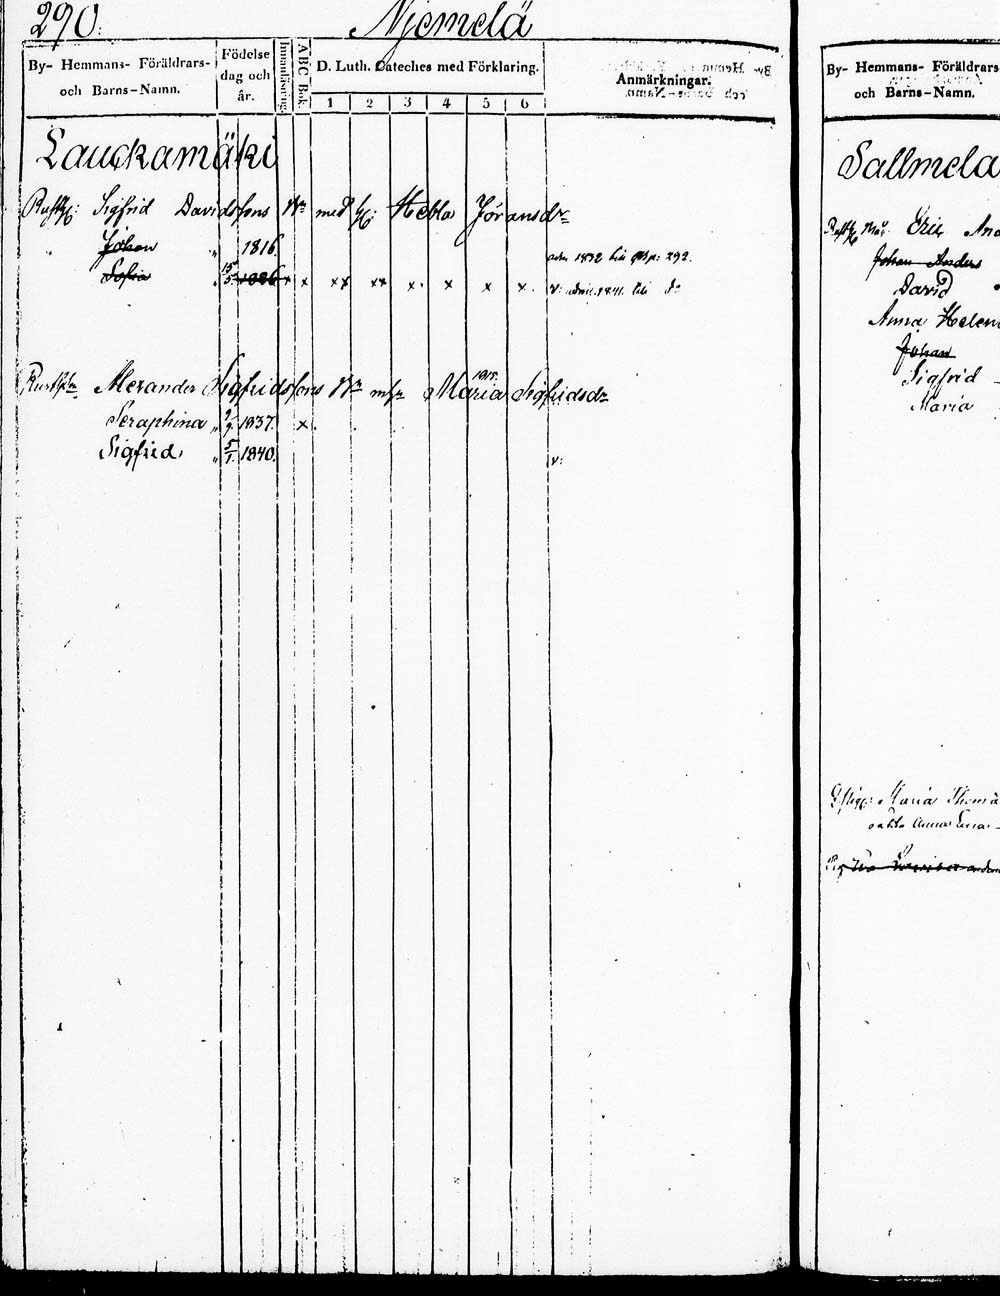 290.
Njemelä
By- Hemmans- Föräldrars-
och Barns-Namn.
Födelse
dag och
år.
Innanläsning.
ABC Bok.
D. Luth. Cateches med Förklaring.
1 2 3 4 5 6
Anmärkningar.
Lauckamäki
Rusth: Sigfrid Davidsfons med h: Hebla Jöransdr
Johan " 1816.
adm. 1832 till 292.
Sofia 15/5 1826 x x xx xx x. x x x. v: admis. 1841. till d:o
Rusth: Alexander Sigfridsfons m hr Maria Sigfridsdr
1815.
Seraphina " 9/9. 1837. x.
Sigfrid " 5/1. 1840. v:
By- Hemmans- Föräldrars-
och Barns-Namn.
Sallmela
Eric And
Johan Anders
David
Anna Helen
Johan
Sigfrid
Maria
Maria Thom
Anna Lena